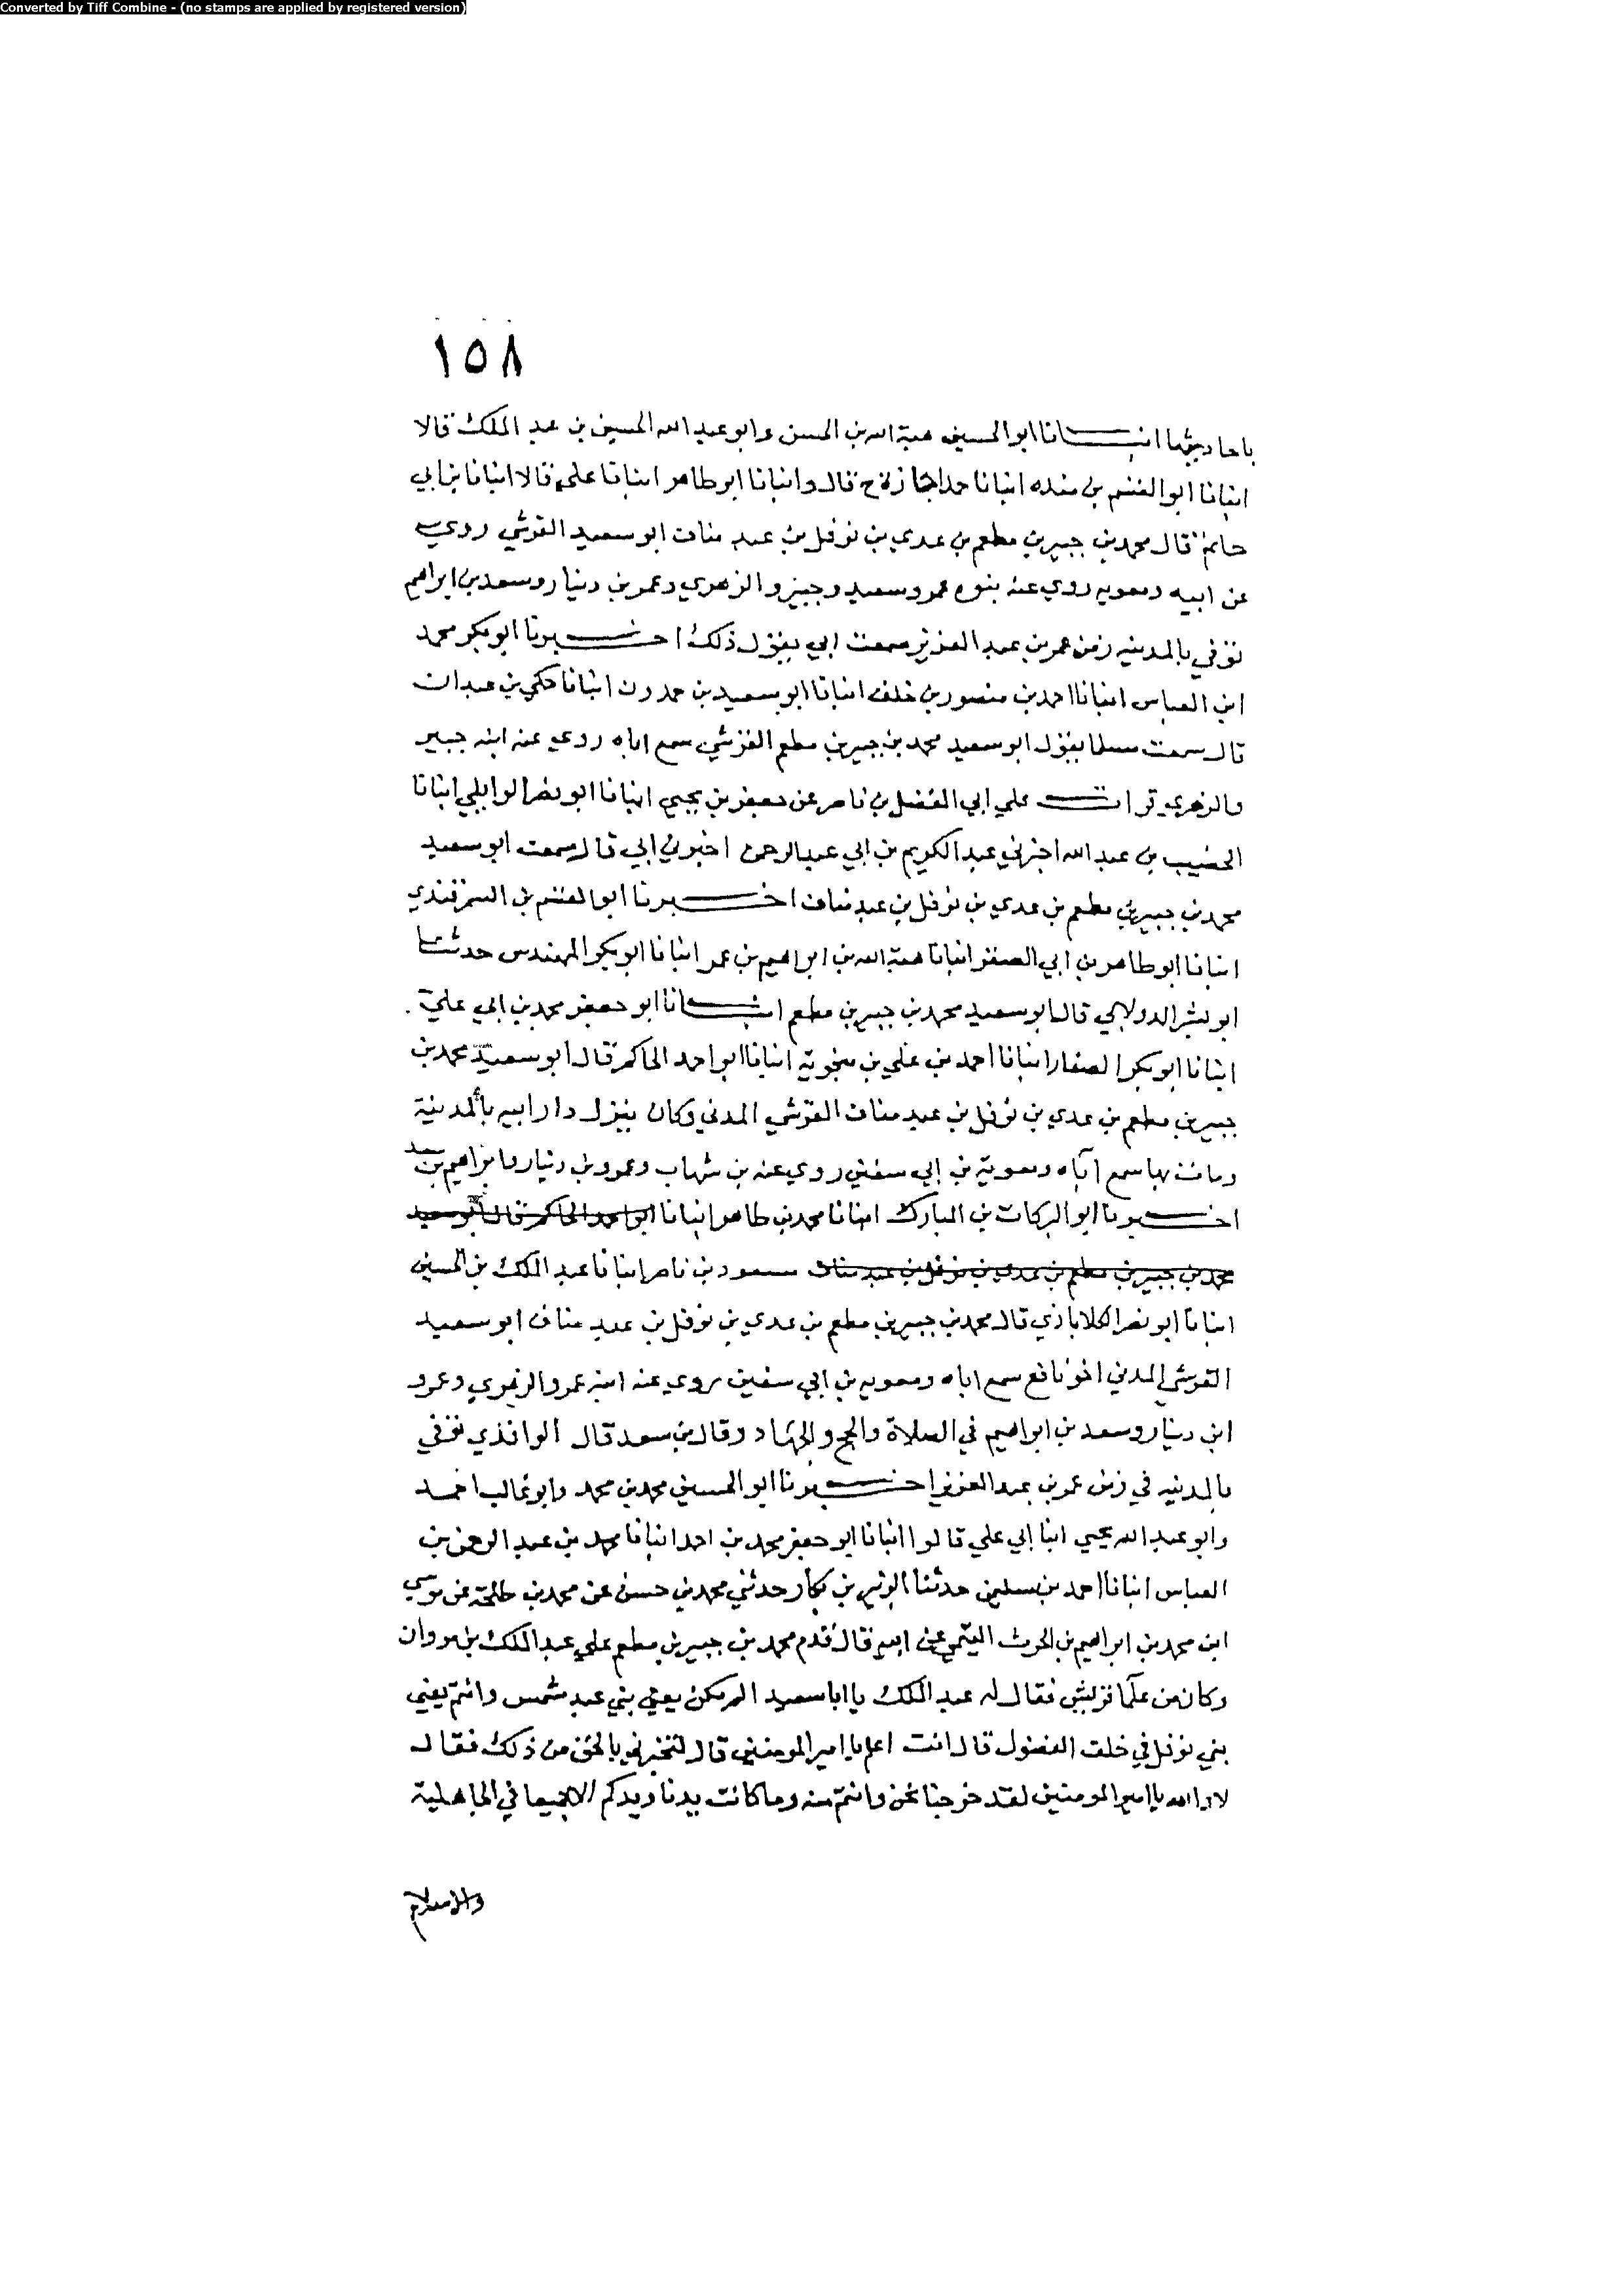 Converted by Tiff Combine - (no stamps are applied by registered version)
١٥٨
باحاديثها انبـــانا ابو الحسين هبة الله بن الحسن وابو عبد الله الحسين بن عبد الملك قالا
انبانا ابو القسم بن منده انبانا حمد اجازة ح قال وانبانا ابو طاهر انبانا علي قالا انبانا بن ابي
حاتم قال محمد بن جبير بن مطعم بن عدي بن نوفل بن عبد مناف ابو سعيد القرشي روي
عن ابيه ومعويه روي عنه بنوه عمر وسعيد وجبير والزهري وعمرو بن دينار وسعد بن ابراهيم
توفي بالمدينه زمن عمر بن عبد العزيز سمعت ابي يقول ذلك اخــبرنا ابو بكر محمد
ابن العباس انبانا احمد بن منصور بن خلف انبانا ابو سعيد بن حمدون انبانا مكي بن عبدان
قال سمعت مسلما يقول ابو سعيد محمد بن جبير بن مطعم القرشي سمع اباه روي عنه ابنه جبير
والزهري قرات علي ابي الفضل بن ناصر عن جعفر بن يحيي انبانا ابو نصر الوايلي انبانا
الخصيب بن عبد الله اخبرني عبد الكريم بن ابي عبد الرحمن اخبرني ابي قال سمعت ابو سعيد
محمد بن جبير بن مطعم بن عدي بن نوفل بن عبد مناف اخــبرنا ابو القسم بن السمرقندي
انبانا ابو طاهر بن ابي الصقر انبانا هبة الله بن ابراهيم بن عمر انبانا ابو بكر المهندس حدثنا
ابو بشر الدولابي قال ابو سعيد محمد بن جبير بن مطعم انبــانا ابو جعفر محمد بن ابي علي
انبانا ابو بكر الصفار انبانا احمد بن علي بن منجويه انبانا ابو احمد الحاكم قال ابو سعيد محمد بن
جبير بن مطعم بن عدي بن نوفل بن عبد مناف القرشي المدني وكان ينزل دار ابيه بالمدينة
ومات بها سمع اباه ومعوية بن ابي سفين روي عنه بن شهاب وعمرو بن دينار وابراهيم بن سعد
اخــبرنا ابو البركات بن المبارك انبانا محمد بن طاهر انبانا ابو احمد الحاكم قال ابو سعيد
محمد بن جبير بن مطعم بن عدي بن نوفل بن عبد مناف مسعود بن ناصر انبانا عبد الملك بن الحسين
انبانا ابو نصر الكلاباذي قال محمد بن جبير بن مطعم بن عدي بن نوفل بن عبد مناف ابو سعيد
القرشي المدني اخو نافع سمع اباه ومعويه بن ابي سفين روي عنه ابنه عمر والزهوي وعمرو
ابن دينار وسعد بن ابراهيم في الصلاة والحج والجهاد وقال بن سعد قال الواقدي توفي
بالمدنيه في زمن عمر بن عبد العزيز اخــبرنا ابو الحسين محمد بن محمد وابو غالب احمد
وابو عبد الله يحيي ابنا ابي علي قالوا انبانا ابو جعفر محمد بن احمد انبانا محمد بن عبد الرحمن بن
العباس انبانا احمد بن سليمن حدثنا الزبير بن بكار حدثني محمد بن حسن عن محمد بن طلحة عن موسي
ابن محمد بن ابراهيم بن الحرث التيمي عن ابيه قال قدم محمد بن جبير بن مطعم علي عبد الملك بن مروان
وكان من علما قريش فقال له عبد الملك يا ابا سعيد الم نكن يعني بني عبد شمس وانتم يعني
بني نوفل في حلف الفضول قال انت اعلم يا امير المومنين قال لتخبرني بالحق من ذلك فقال
لا والله يا امير المومنين لقد خرجنا نحن وانتم منه وما كانت يدنا ويدكم الا جميعا في الجاهلية
والاسلام